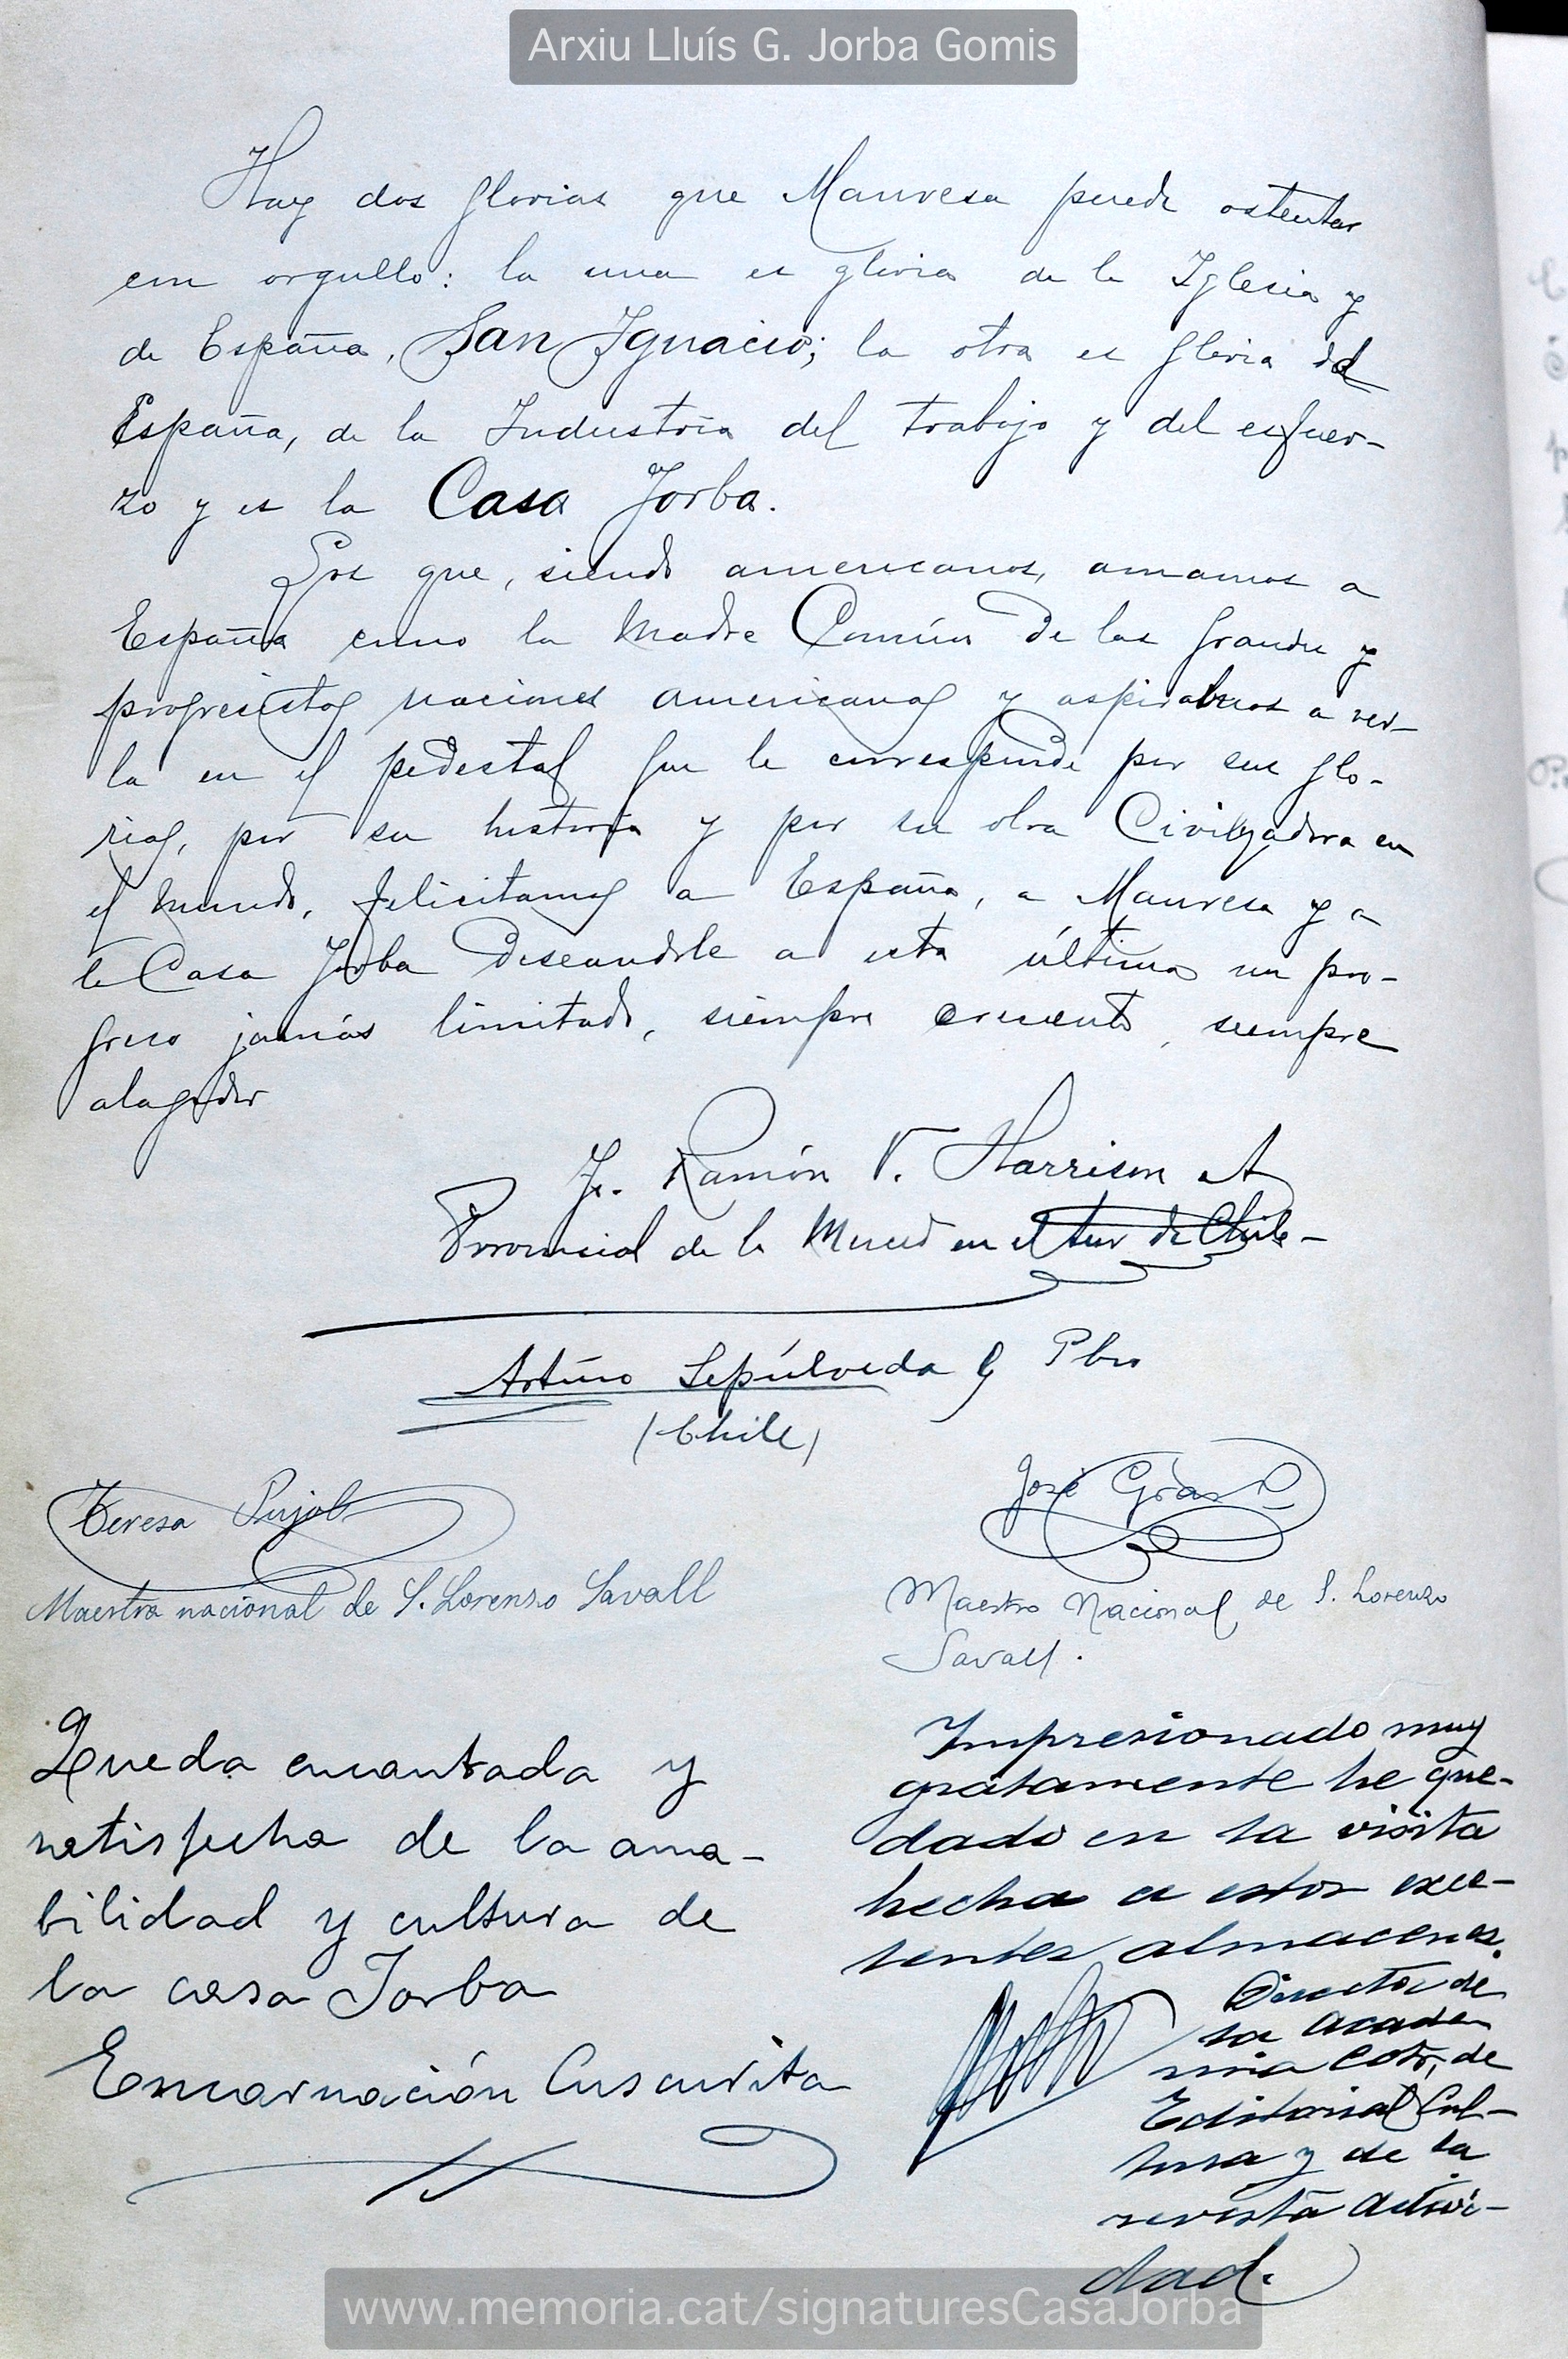 Arxiu Lluís G. Jorba Gomis
Hay dos glorias que Manresa puede ostentar
con orgullo: la una es gloria de la Iglesia y
de España, San Ignacio; la otra es gloria de
España, de la Industria del trabajo y del esfuer-
zo y es la Casa Jorba.
Los que, siendo americanos, amamos a
España como la Madre Común de las grandes y
progresistas naciones americanas y aspiramos a ver-
la en el pedestal que le corresponde por sus glo-
rias, por su historia y por su obra Civilizadora en
el mundo, felicitamos a España, a Manresa y a
la Casa Jorba deseandole a esta última un pro-
greso jamás limitado, siempre creciente, siempre
alagador
Fr. Ramón V. Harrison A
Provincial de la Merced en el Sur de Chile-
Arturo Sepúlveda G Pbro
(Chile)
Teresa Pujol
Maestra nacional de S. Lorenzo Savall
José Gras
Maestro Nacional de S. Lorenzo
Savall.
Queda encantada y
satisfecha de la ama-
bilidad y cultura de
la casa Jorba
Encarnación Cuscurita
Impresionado muy
gratamente he que-
dado en la visita
hecha a estos exce-
lentes almacenes.
Director de
la Acade
mia Cots, de
Editorial Cul-
tura y de la
revista Activi-
dad.
www.memoria.cat/signaturesCasaJorba